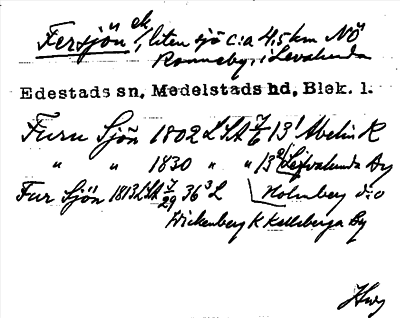 Fersjön ek, liten sjö c:a 4,5 km NÖ
Ronneby, i Levalunda
Edestads sn, Medelstads hd, Blek. l.
Furu Sjön 1802 LSA 7/6 13' Abelin K
" " 1830 " " 13 Lejvalunda By
Fur Sjön 1813 LSA 7/29 36 L Holmberg d:o
Wickenberg K Kalleberga By